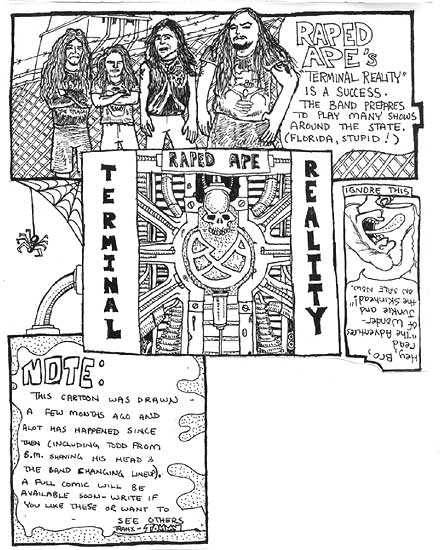 RAPED
APE'S
"TERMINAL REALITY"
IS A SUCCESS.
THE BAND PREPARES
TO PLAY MANY SHOWS
AROUND THE STATE.
(FLORIDA, STUPID!)
RAPED APE
TERMINAL
REALITY
IGNORE THIS
Hey, Bro,
read
"The Adventures
of Wonder-
Junkie and
the Skinhead"
ON SALE NOW.
NOTE:
THIS CARTOON WAS DRAWN
A FEW MONTHS AGO AND
ALOT HAS HAPPENED SINCE
THEN (INCLUDING TODD FROM
B.M. SHAVING HIS HEAD &
THE BAND CHANGING LINEUP).
A FULL COMIC WILL BE
AVAILABLE SOON - WRITE IF
YOU LIKE THESE OR WANT TO
SEE OTHERS
THANX -